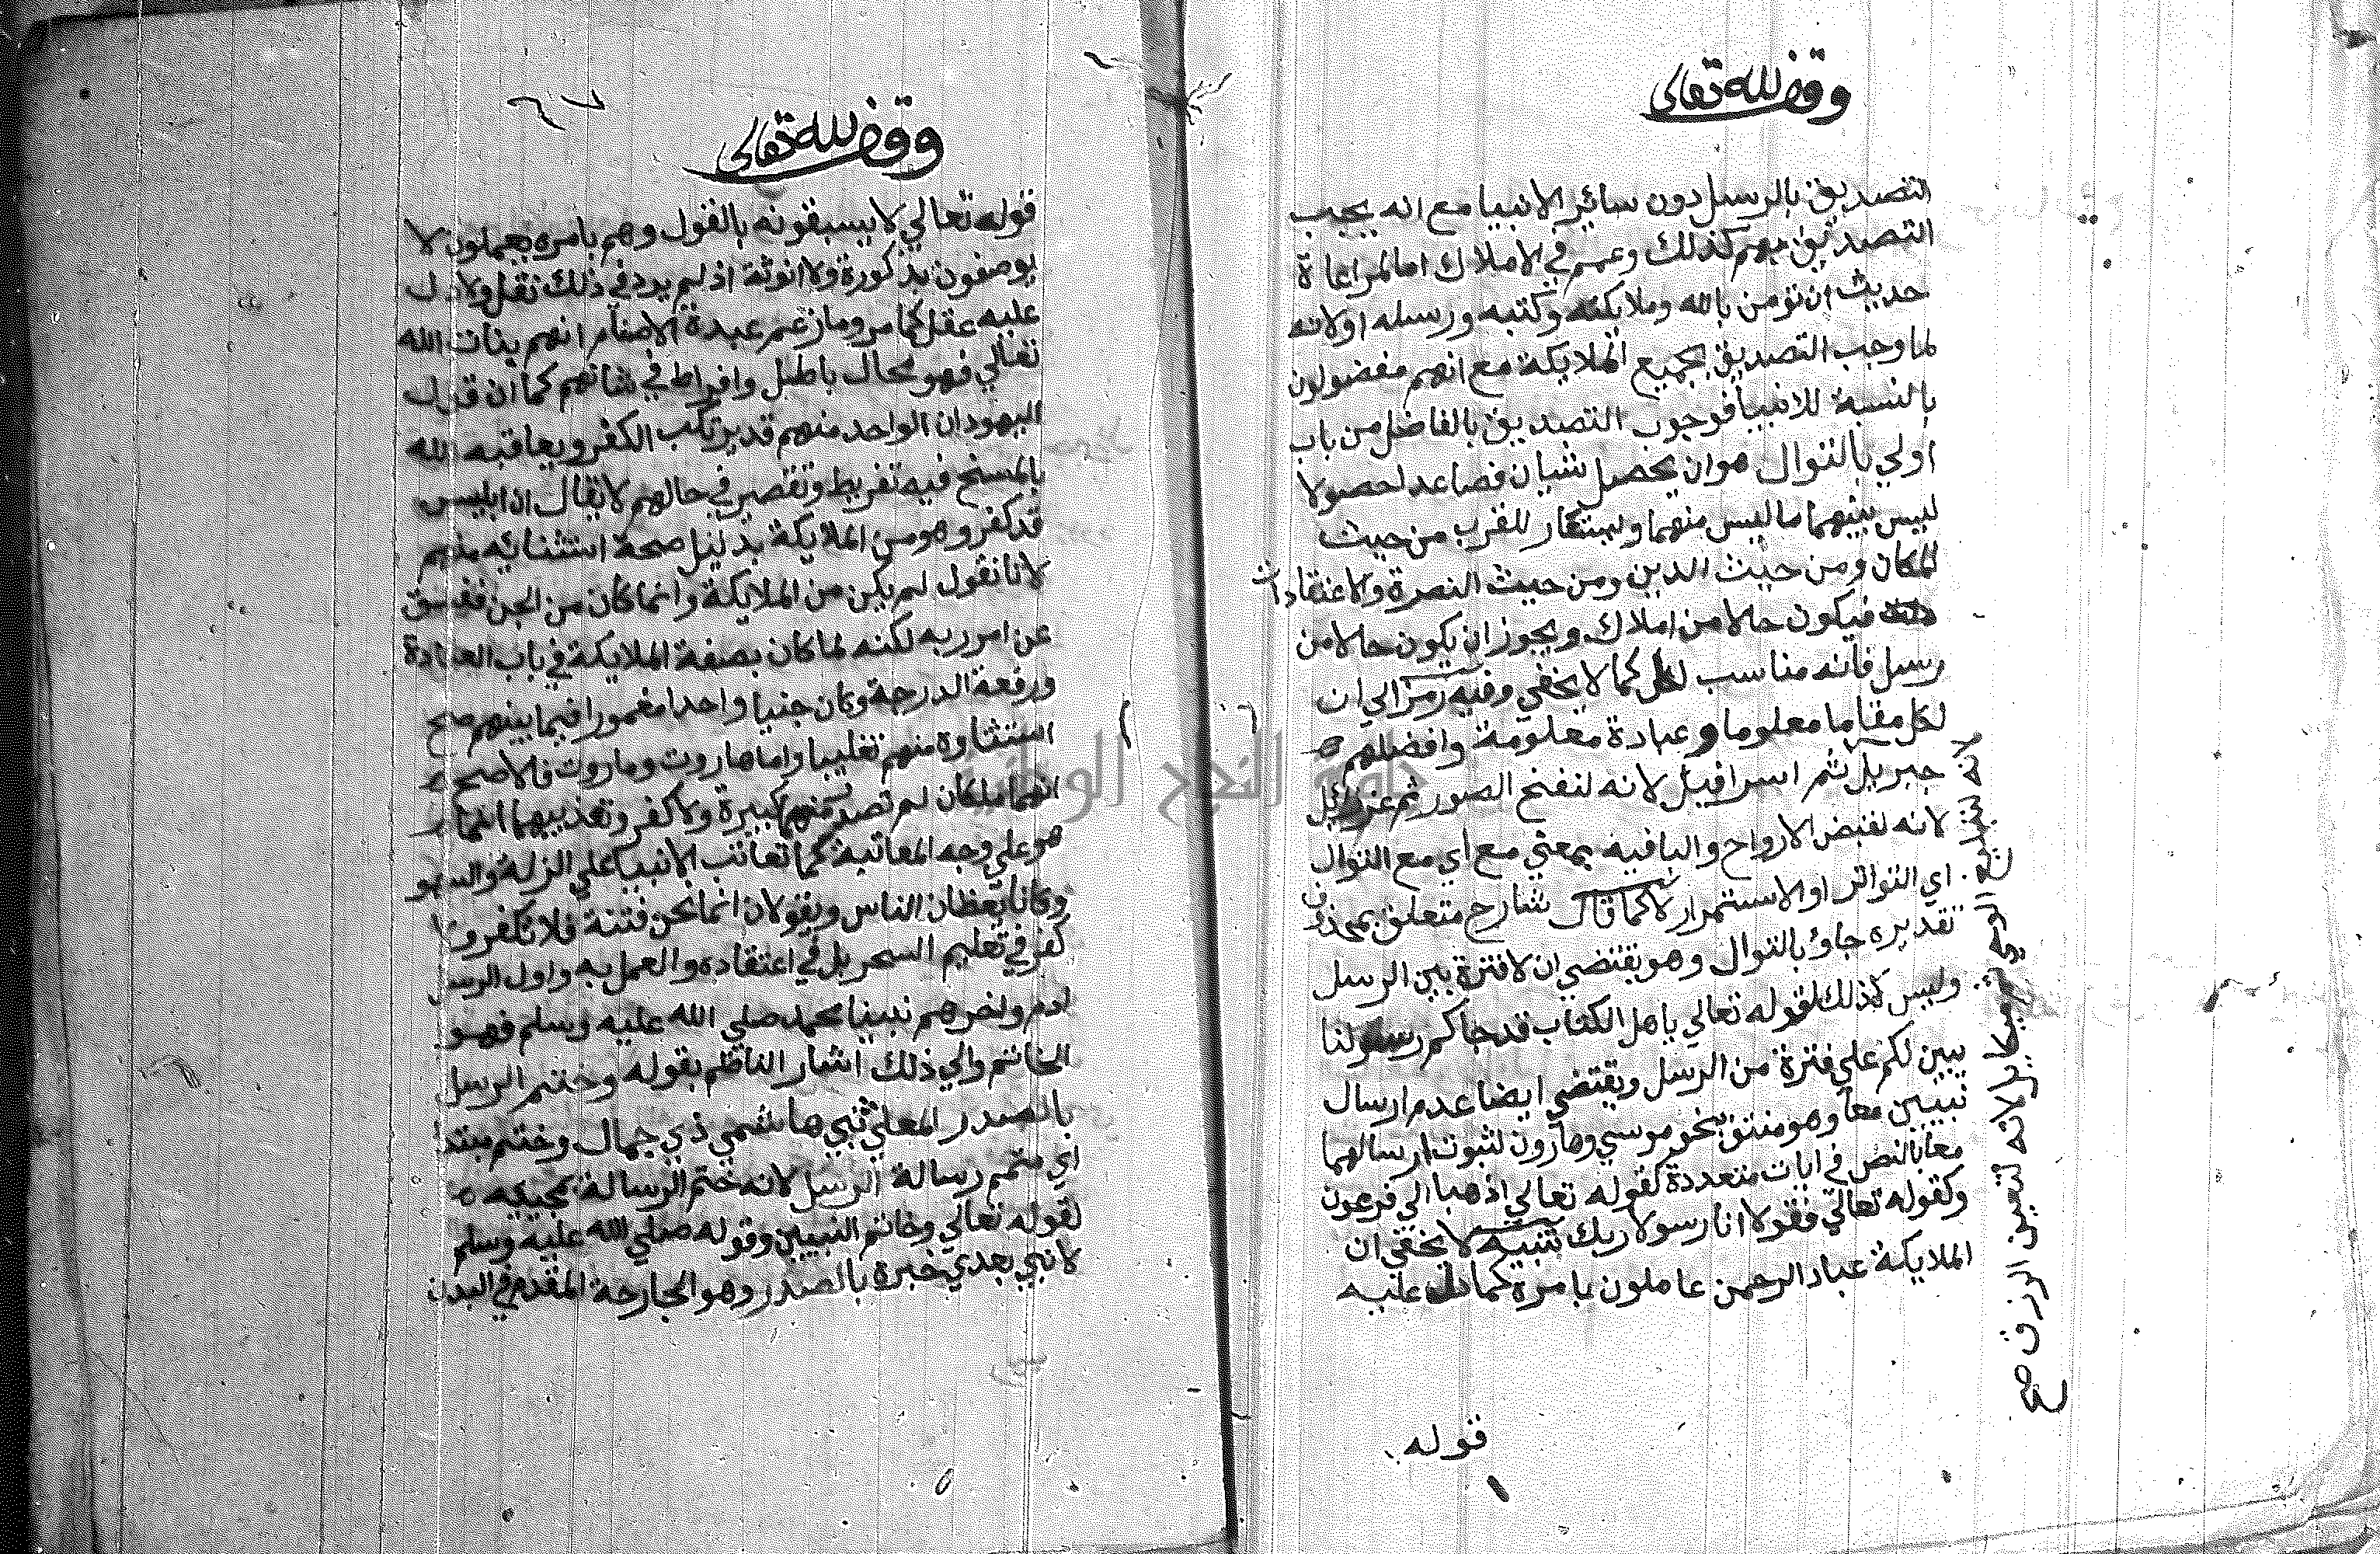 وقف لله تعالى
التصديق بالرسل دون سائر الانبيا مع انه يجب
التصديق بهم كذلك وعمم في الاملاك اما لمراعاة
حديث ان تومن بالله وملايكته وكتبه ورسله اولانه
لما وجب التصديق بجميع الملايكة مع انهم مفضولون
بالنسبة للانبيا فوجوب التصديق بالفاضل من باب
اولي بالتوال هو ان يحصل شيان فصاعدا حصولا
ليس بينهما ما ليس منهما ويستعار للقرب من حيث
المكان ومن حيث الدين ومن حيث النصرة والاعتقادات
فيكون حالا من املاك ويجوز ان يكون حالا من
رسل فانه مناسب لكل كما لا يخفي وفيه رمز الي ان
لكل مقاما معلوما وعبادة معلومة وافضلهم
جبريل ثم اسرافيل لانه لنفخ الصور ثم عزرائيل
لانه لقبض الارواح والبا فيه بمعني مع اي مع التوال
اي التواتر او الاستمرار لا كما قال شارح متعلق بمحذوف
تقديره جاؤ بالتوال وهو يقتضي ان لا فترة بين الرسل
وليس كذلك لقوله تعالي ياهل الكتاب قد جاكم رسولنا
يبين لكم علي فترة من الرسل ويقتضي ايضا عدم ارسال
نبيين معا وهو منتقض بنحو موسي وهارون لثبوت ارسالهما
معا بالنص في ايات متعددة كقوله تعالي اذهبا الي فرعون
وكقوله تعالي فقولا انا رسولا ربك تنبيه لا يخفي ان
الملايكة عباد الرحمن عاملون بامره كما دل عليه
قوله
لانه لتبليغ الوحي ثم ميكاييل لانه لتعيين الرزق صح
وقف لله تعالى
٢٧
قوله تعالي لا يسبقونه بالقول وهم بامره يعملون لا
يوصفون بذكورة ولا انوثة اذ لم يرد في ذلك نقل ولا دل
عليه عقل كما مر وما زعم عبدة الاصنام انهم بنات الله
تعالي فهو محال باطل وافراط في شانهم كما ان قول
اليهود ان الواحد منهم قد يرتكب الكفر ويعاقبه الله
بالمسخ فيه تفريط وتقصير في حالهم لا يقال ان ابليس
قد كفر وهو من الملايكة بدليل صحة استثنائه منهم
لانا نقول لم يكن من الملايكة وانما كان من الجن ففسق
عن امر ربه لكنه لما كان بصفة الملايكة في باب العبادة
ورفعة الدرجة وكان جنيا واحدا مغمورا فيما بينهم صح
استثناوه منهم تغليبا واما هاروت وماروت فالاصح
انهما ملكان لم تصدر منهما كبيرة ولا كفر وتعذيبهما انما
هو علي وجه المعاتبة كما تعاتب الانبيا علي الزلة والسهو
وكانا يعظان الناس ويقولان انما نحن فتنة فلا تكفر ولا
كفر في تعليم السحر بل في اعتقاده والعمل به واول الرسل
ادم واخرهم نبينا محمد صلي الله عليه وسلم فهو
الخاتم والي ذلك اشار الناظم بقوله وختم الرسل
بالصدر المعلي نبي هاشمي ذي جمال وختم مبتدا
اي متمم رسالة الرسل لانه ختم الرسالة بمجيئه
لقوله تعالي وخاتم النبيين وقوله صلي الله عليه وسلم
لا نبي بعدي خبره بالصدر وهو الجارحة المقدم في البدن